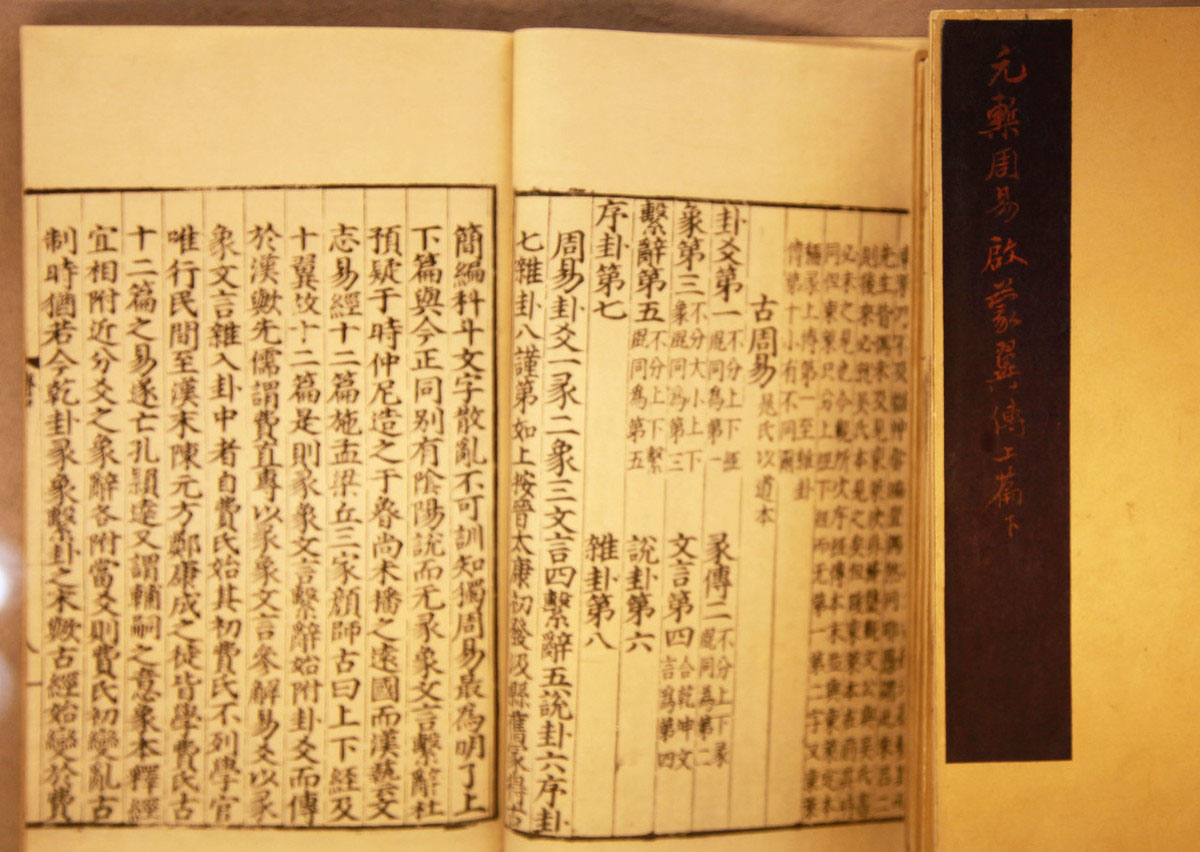 元槧周易啟蒙翼傳上篇下
同但東萊只分上經下經而无第一第二字又東萊
稱彖上傳第一至雜卦
傳第十小有不同爾
古周易 是氏以道本
卦爻第一 不分上下經混同為第一 彖傳二 不分上下彖混同為第二
象第三 不分大小上下象混同為第三 文言第四 合乾坤文言為第四
繫辭第五 不分上下繫混同為第五 說卦第六
序卦第七 雜卦第八
周易卦爻一彖二象三文言四繫辭五說卦六序卦
七雜卦八謹第如上按晉太康初發汲縣舊冢得古
簡編科斗文字散亂不可訓知獨周易最為明了上
下篇與今正同別有陰陽說而无彖象文言繫辭杜
預疑于時仲尼造之于魯尚未播之遠國而漢藝文
志易經十二篇施孟梁丘三家顏師古曰上下經及
十翼故十二篇是則彖象文言繫辭始附卦爻而傳
於漢歟先儒謂費直專以彖象文言參解易爻以彖
象文言雜入卦中者自費氏始其初費氏不列學官
唯行民間至漢末陳元方鄭康成之徒皆學費氏古
十二篇之易遂亡孔穎達又謂輔嗣之意象本釋經
宜相附近分爻之象辭各附當爻則費氏初變亂古
制時猶若今乾卦彖象繫卦之末歟古經始變於費